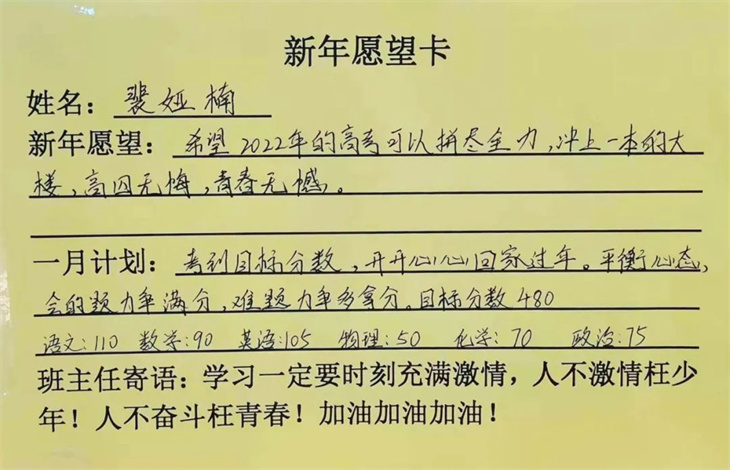 新年愿望卡
姓名：裴娅楠
新年愿望：希望2022年的高考可以拼尽全力，冲上一本的大
楼，高四无悔，青春无憾。
一月计划：考到目标分数，开开心心回家过年。平衡心态，
会的题力争满分，难题力争多拿分。目标分数480
语文：110 数学：90 英语：105 物理：50 化学：70 政治：75
班主任寄语：学习一定要时刻充满激情，人不激情枉少
年！人不奋斗枉青春！加油加油加油！